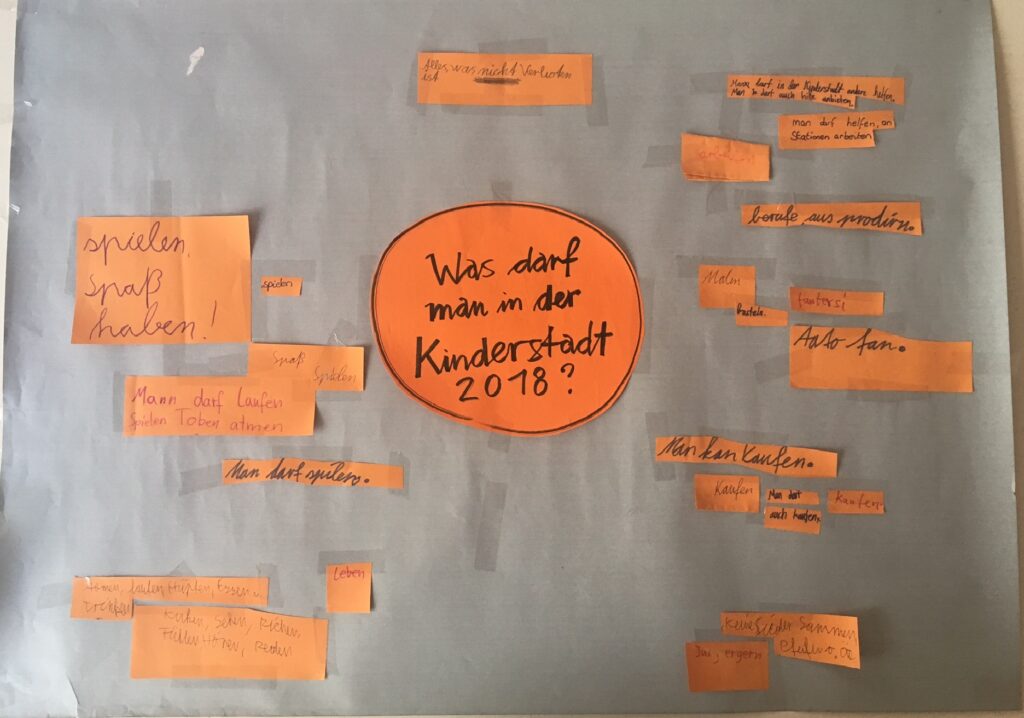 Alles was nicht Verboten
ist
Mann darf in der Kinderstadt andere helfen.
Man darf auch hilfe anbieten.
man darf helfen, an
Stationen arbeiten
arbeiten
berufe aus prodirn.
Was darf
man in der
Kinderstadt
2018?
spielen,
Spaß
haben!
spielen
Spaß
Spielen
Mann darf Laufen
Spielen Toben atmen
Man darf spilen.
Maln
basteln.
fantersi
Aato fan.
Man kan Kaufen.
Kaufen
Man darf
auch kaufen.
kaufen
Leben
Atmen, laufen, Hüpfen, Essen u.
trinken
Sehn, Richen
Fühlen Hören, Reden
Keine Lieder Sammen
ergern